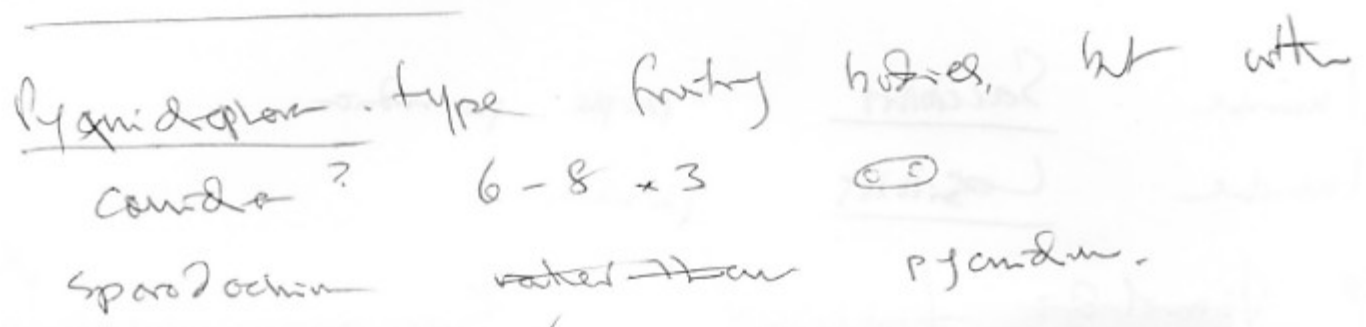 Pycnidiophora-type fruiting bodies, but with
conidia? 6 - 8 x 3
sporodochium rather than pycnidium.